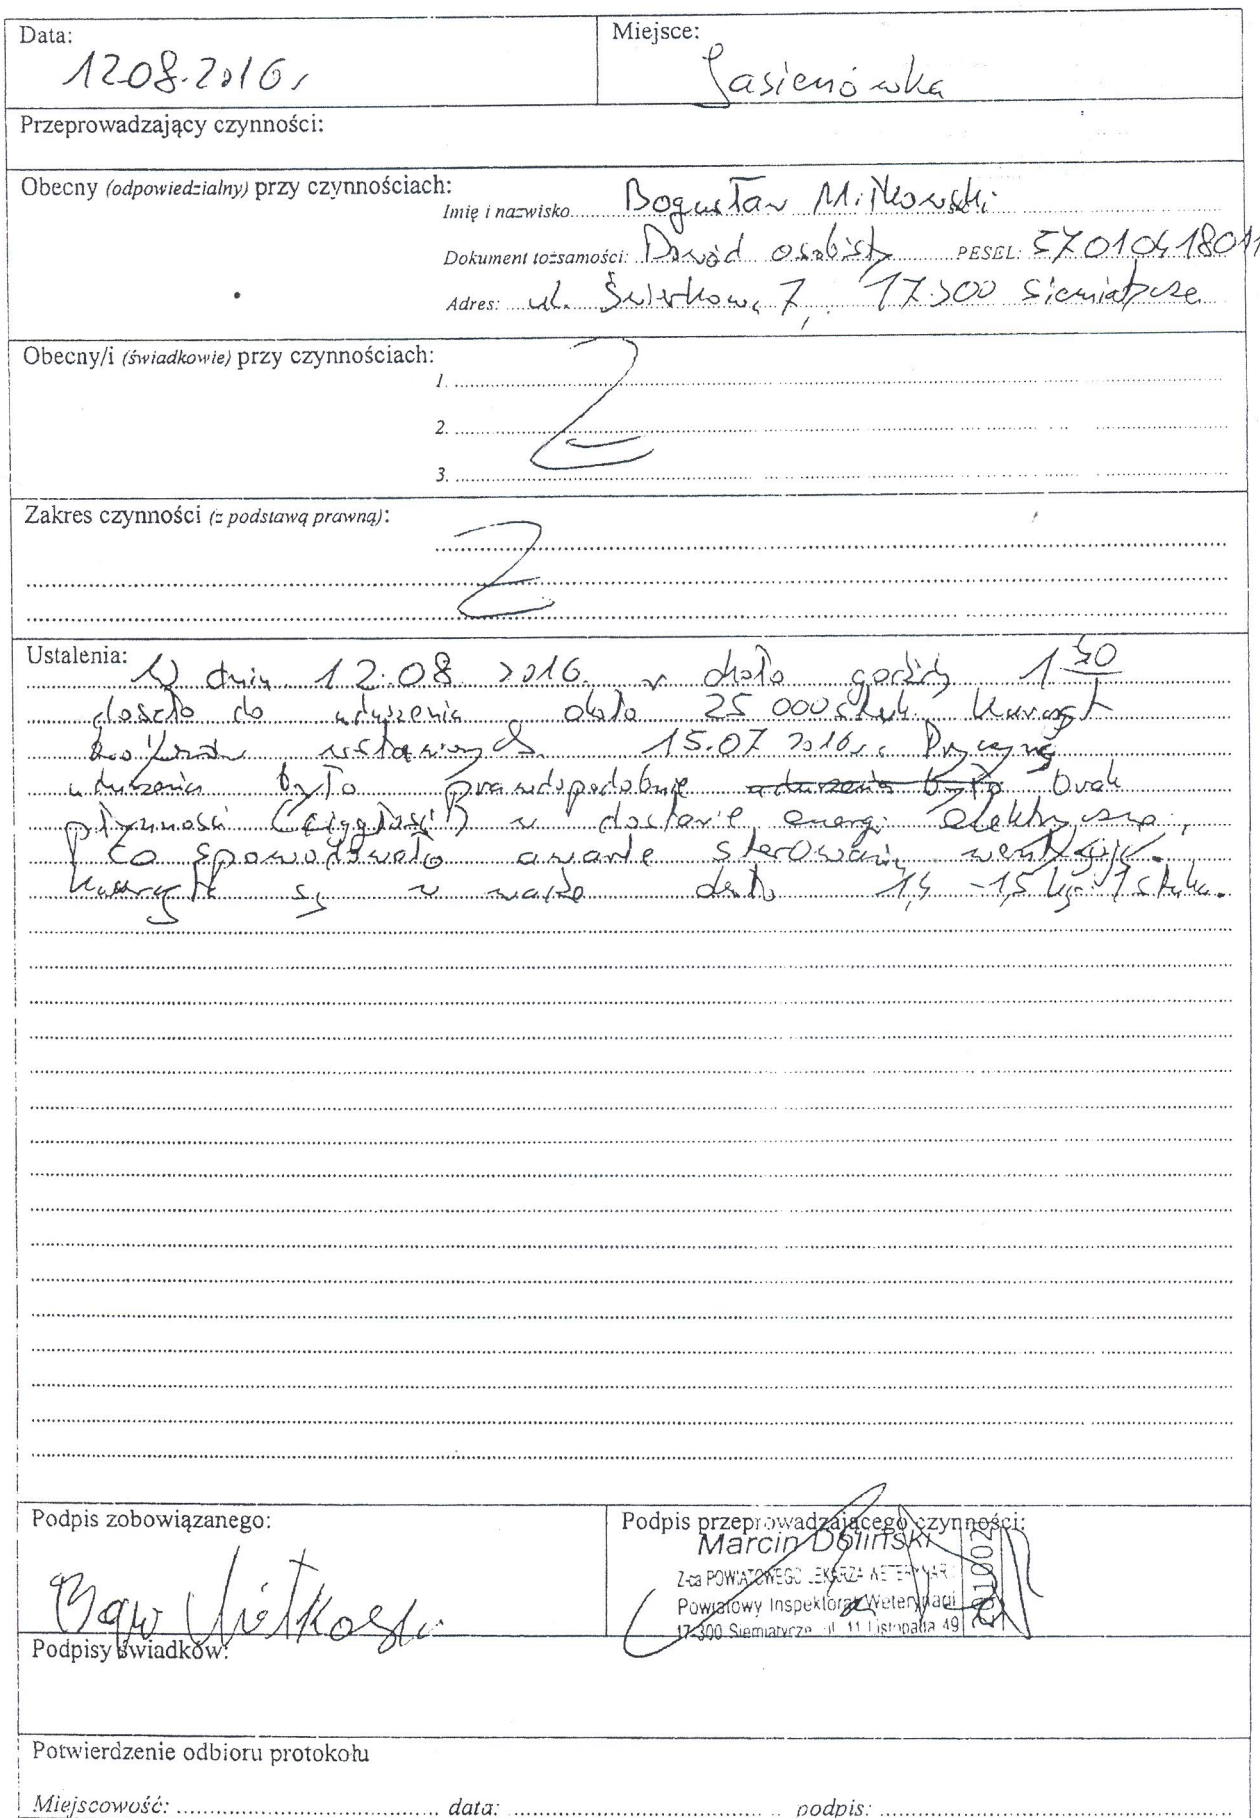 Data: Miejsce:
12.08.2016r Jasienówka
Przeprowadzający czynności:
Obecny (odpowiedzialny) przy czynnościach:
Imię i nazwisko Bogusław Mitkowski
Dokument tożsamości: Dowód osobisty PESEL:
Adres: ul. Świerkowa 7, 17-300 Siemiatycze
Obecny/i (świadkowie) przy czynnościach:
1.
2.
3.
Zakres czynności (z podstawą prawną):
Ustalenia: W dniu 12.08 2016 r około godziny 1
doszło do uduszenia około 25 000 sztuk kurcząt
brojlerów wstawionych 15.07 2016r. Przyczyną
uduszenia było prawdopodobnie uduszenia było brak
płynności (ciągłości) w dostawie energii elektrycznej,
co spowodowało awarię sterowania wentylacji.
Kurczęta są w wadze około 1,4 - 1,5 kg 1 sztuka.
Podpis zobowiązanego: Podpis przeprowadzającego czynności:
Marcin Doliński
Z-ca POWIATOWEGO LEKARZA WETERYNARII
Powiatowy Inspektorat Weterynarii
17-300 Siemiatycze, ul. 11 Listopada 49
Podpisy świadków:
Potwierdzenie odbioru protokołu
Miejscowość: data: podpis: